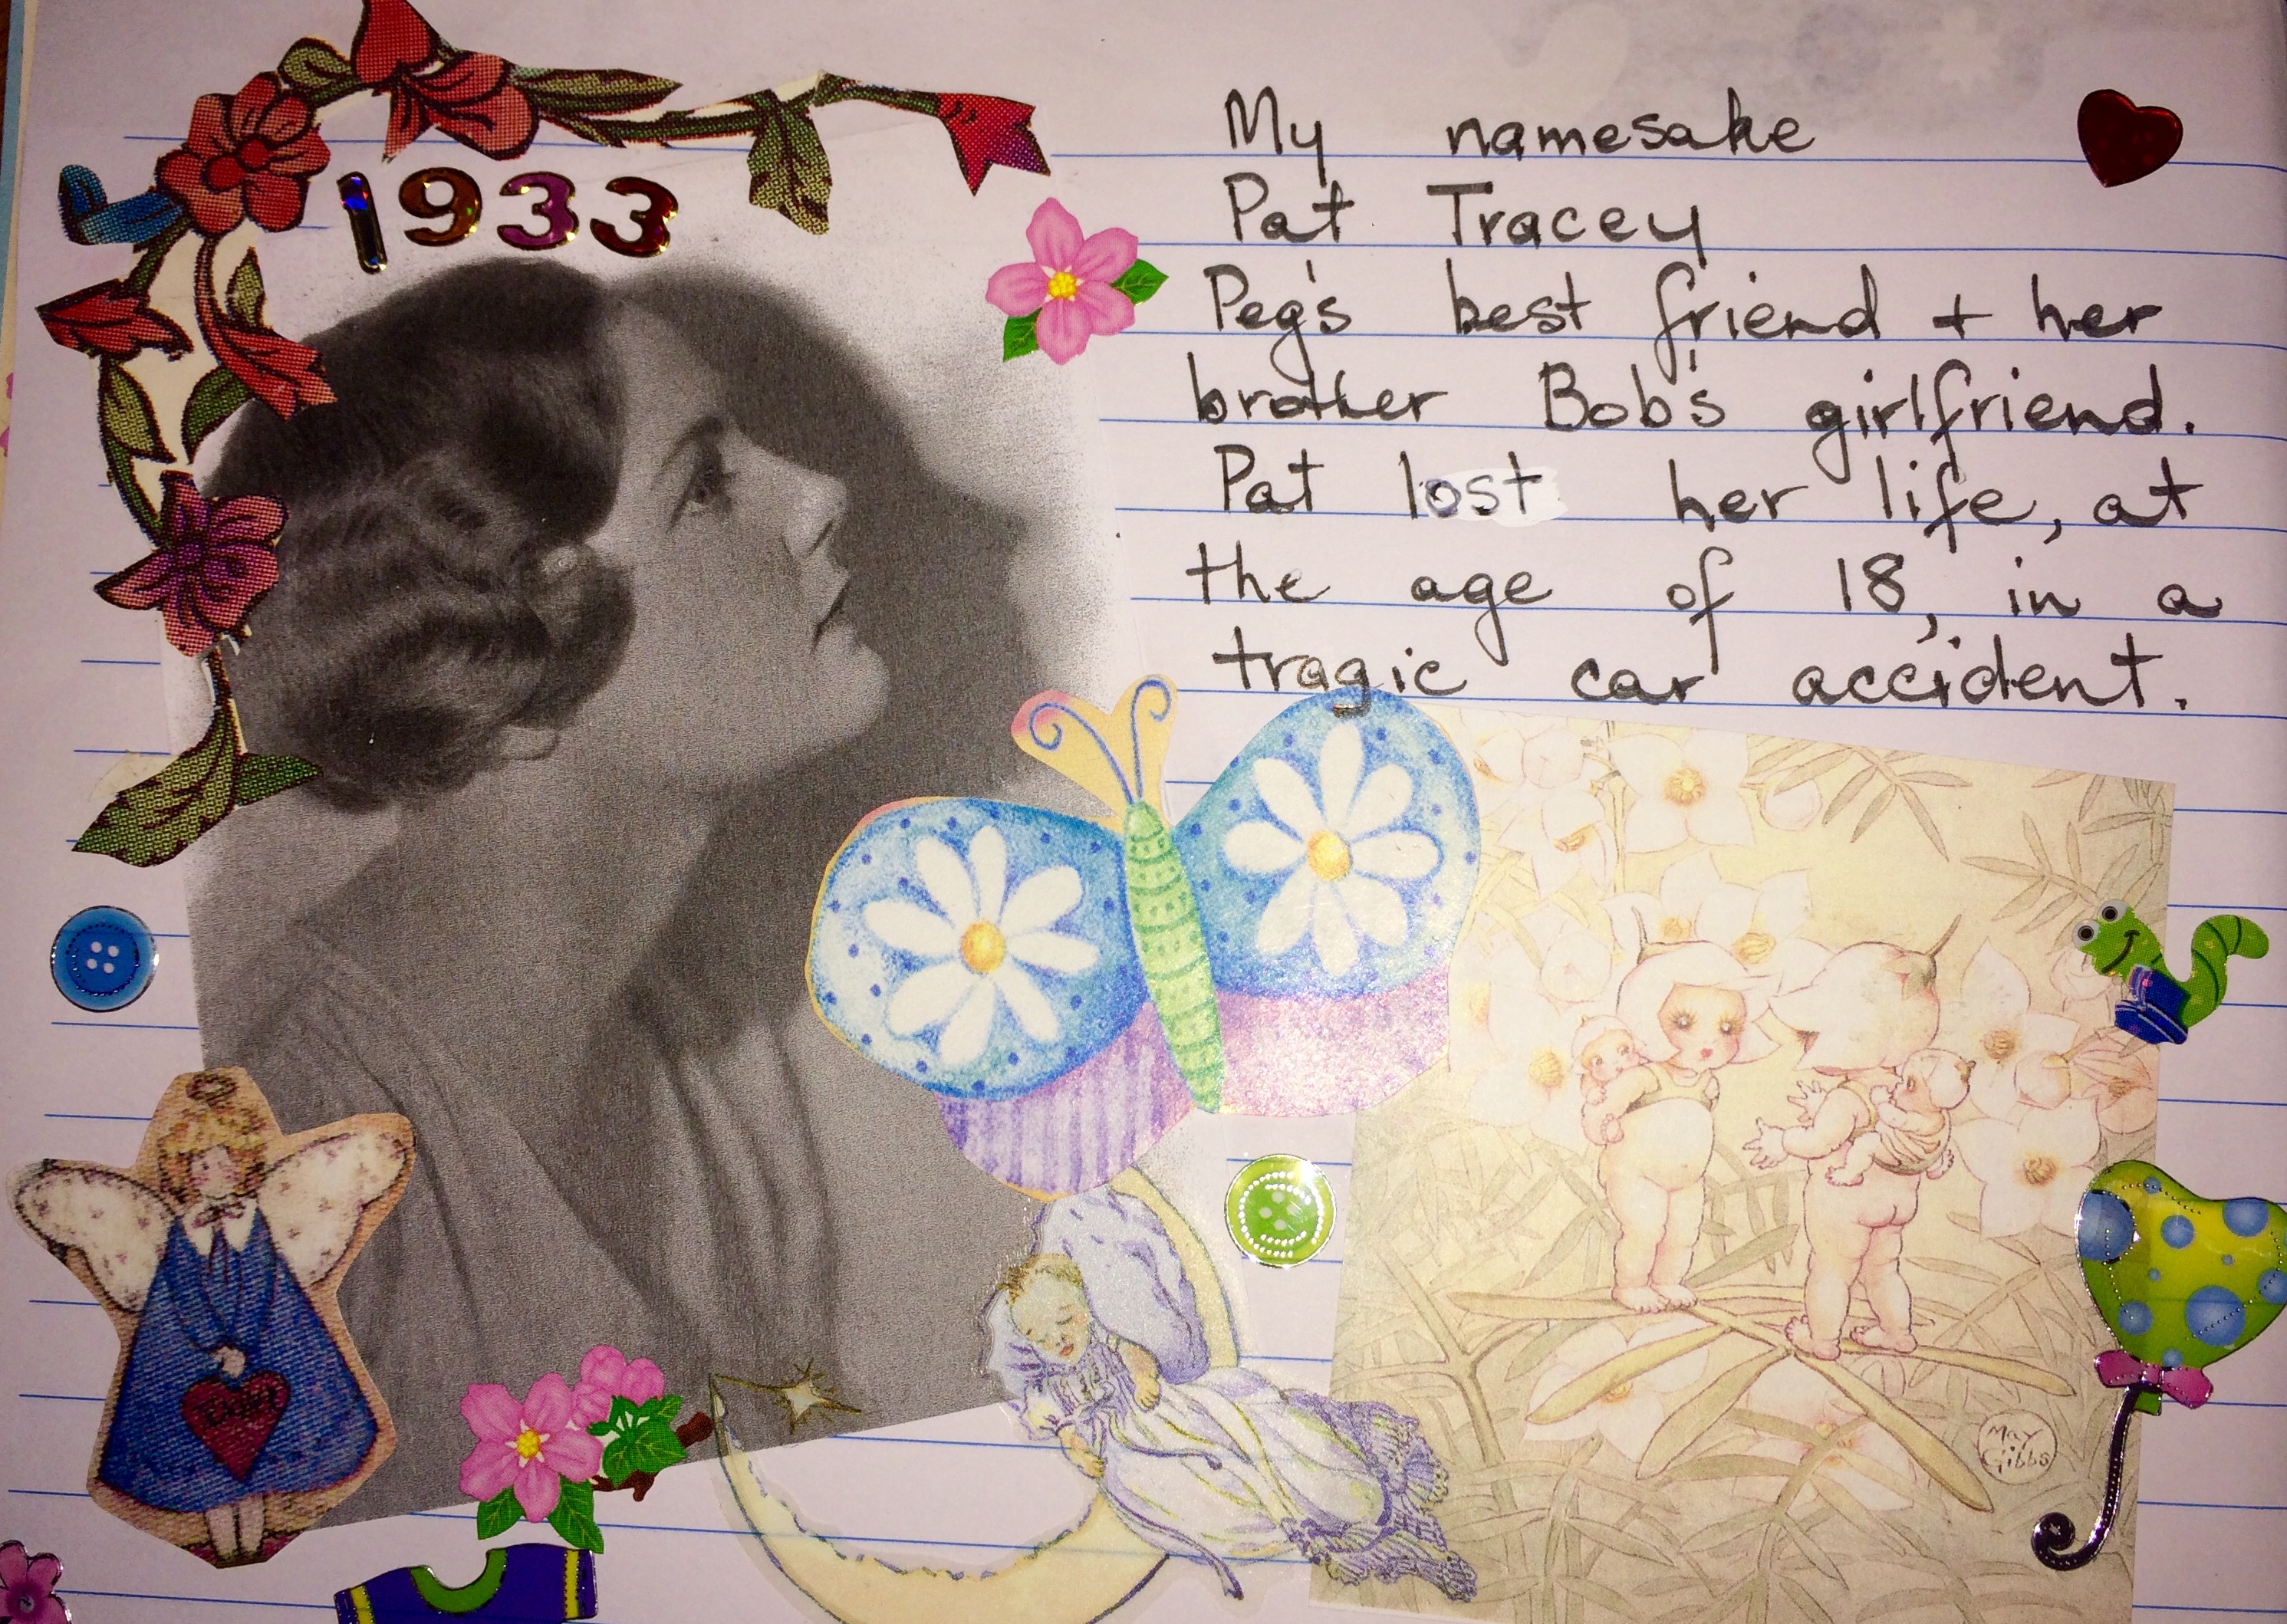 1933
My namesake
Pat Tracey
Peg's best friend + her
brother Bob's girlfriend.
Pat lost her life, at
the age of 18, in a
tragic car accident.
May
Gibbs